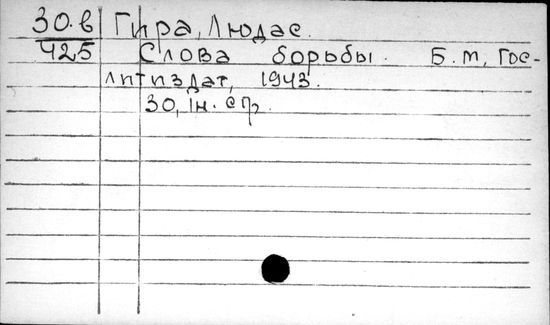 30.в Гира, Людас.
425 Слова борьбы. Б.м, Гос-
литиздат, 1943.
30, 1н. стр.